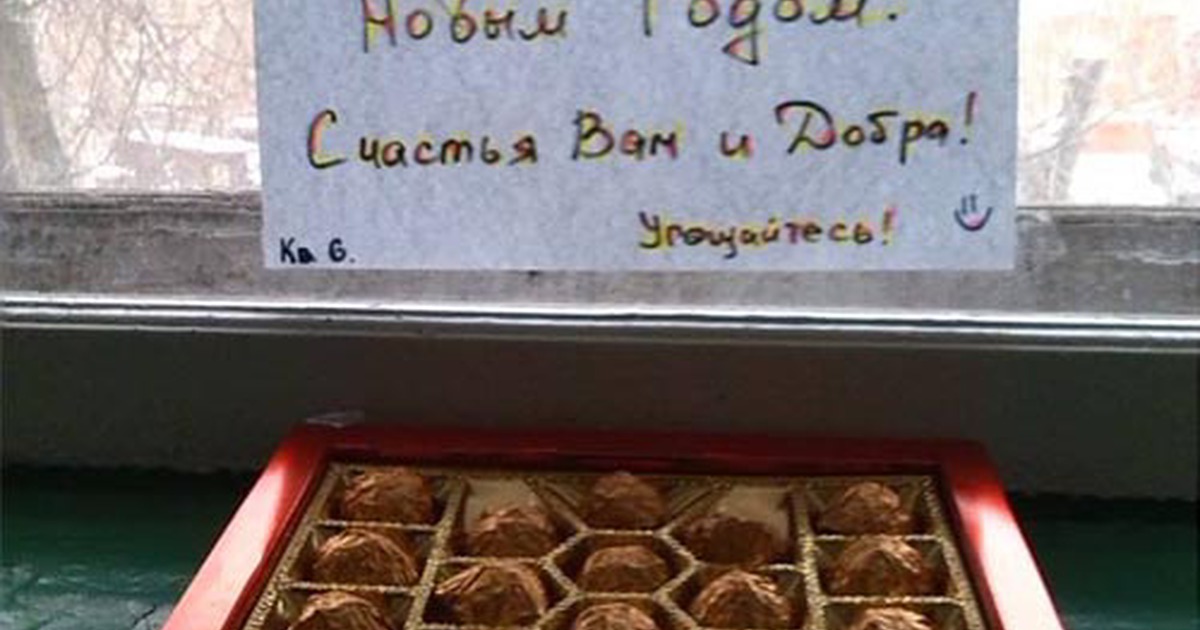 Новым Годом!
Счастья Вам и Добра!
Угощайтесь!
Кв 6.